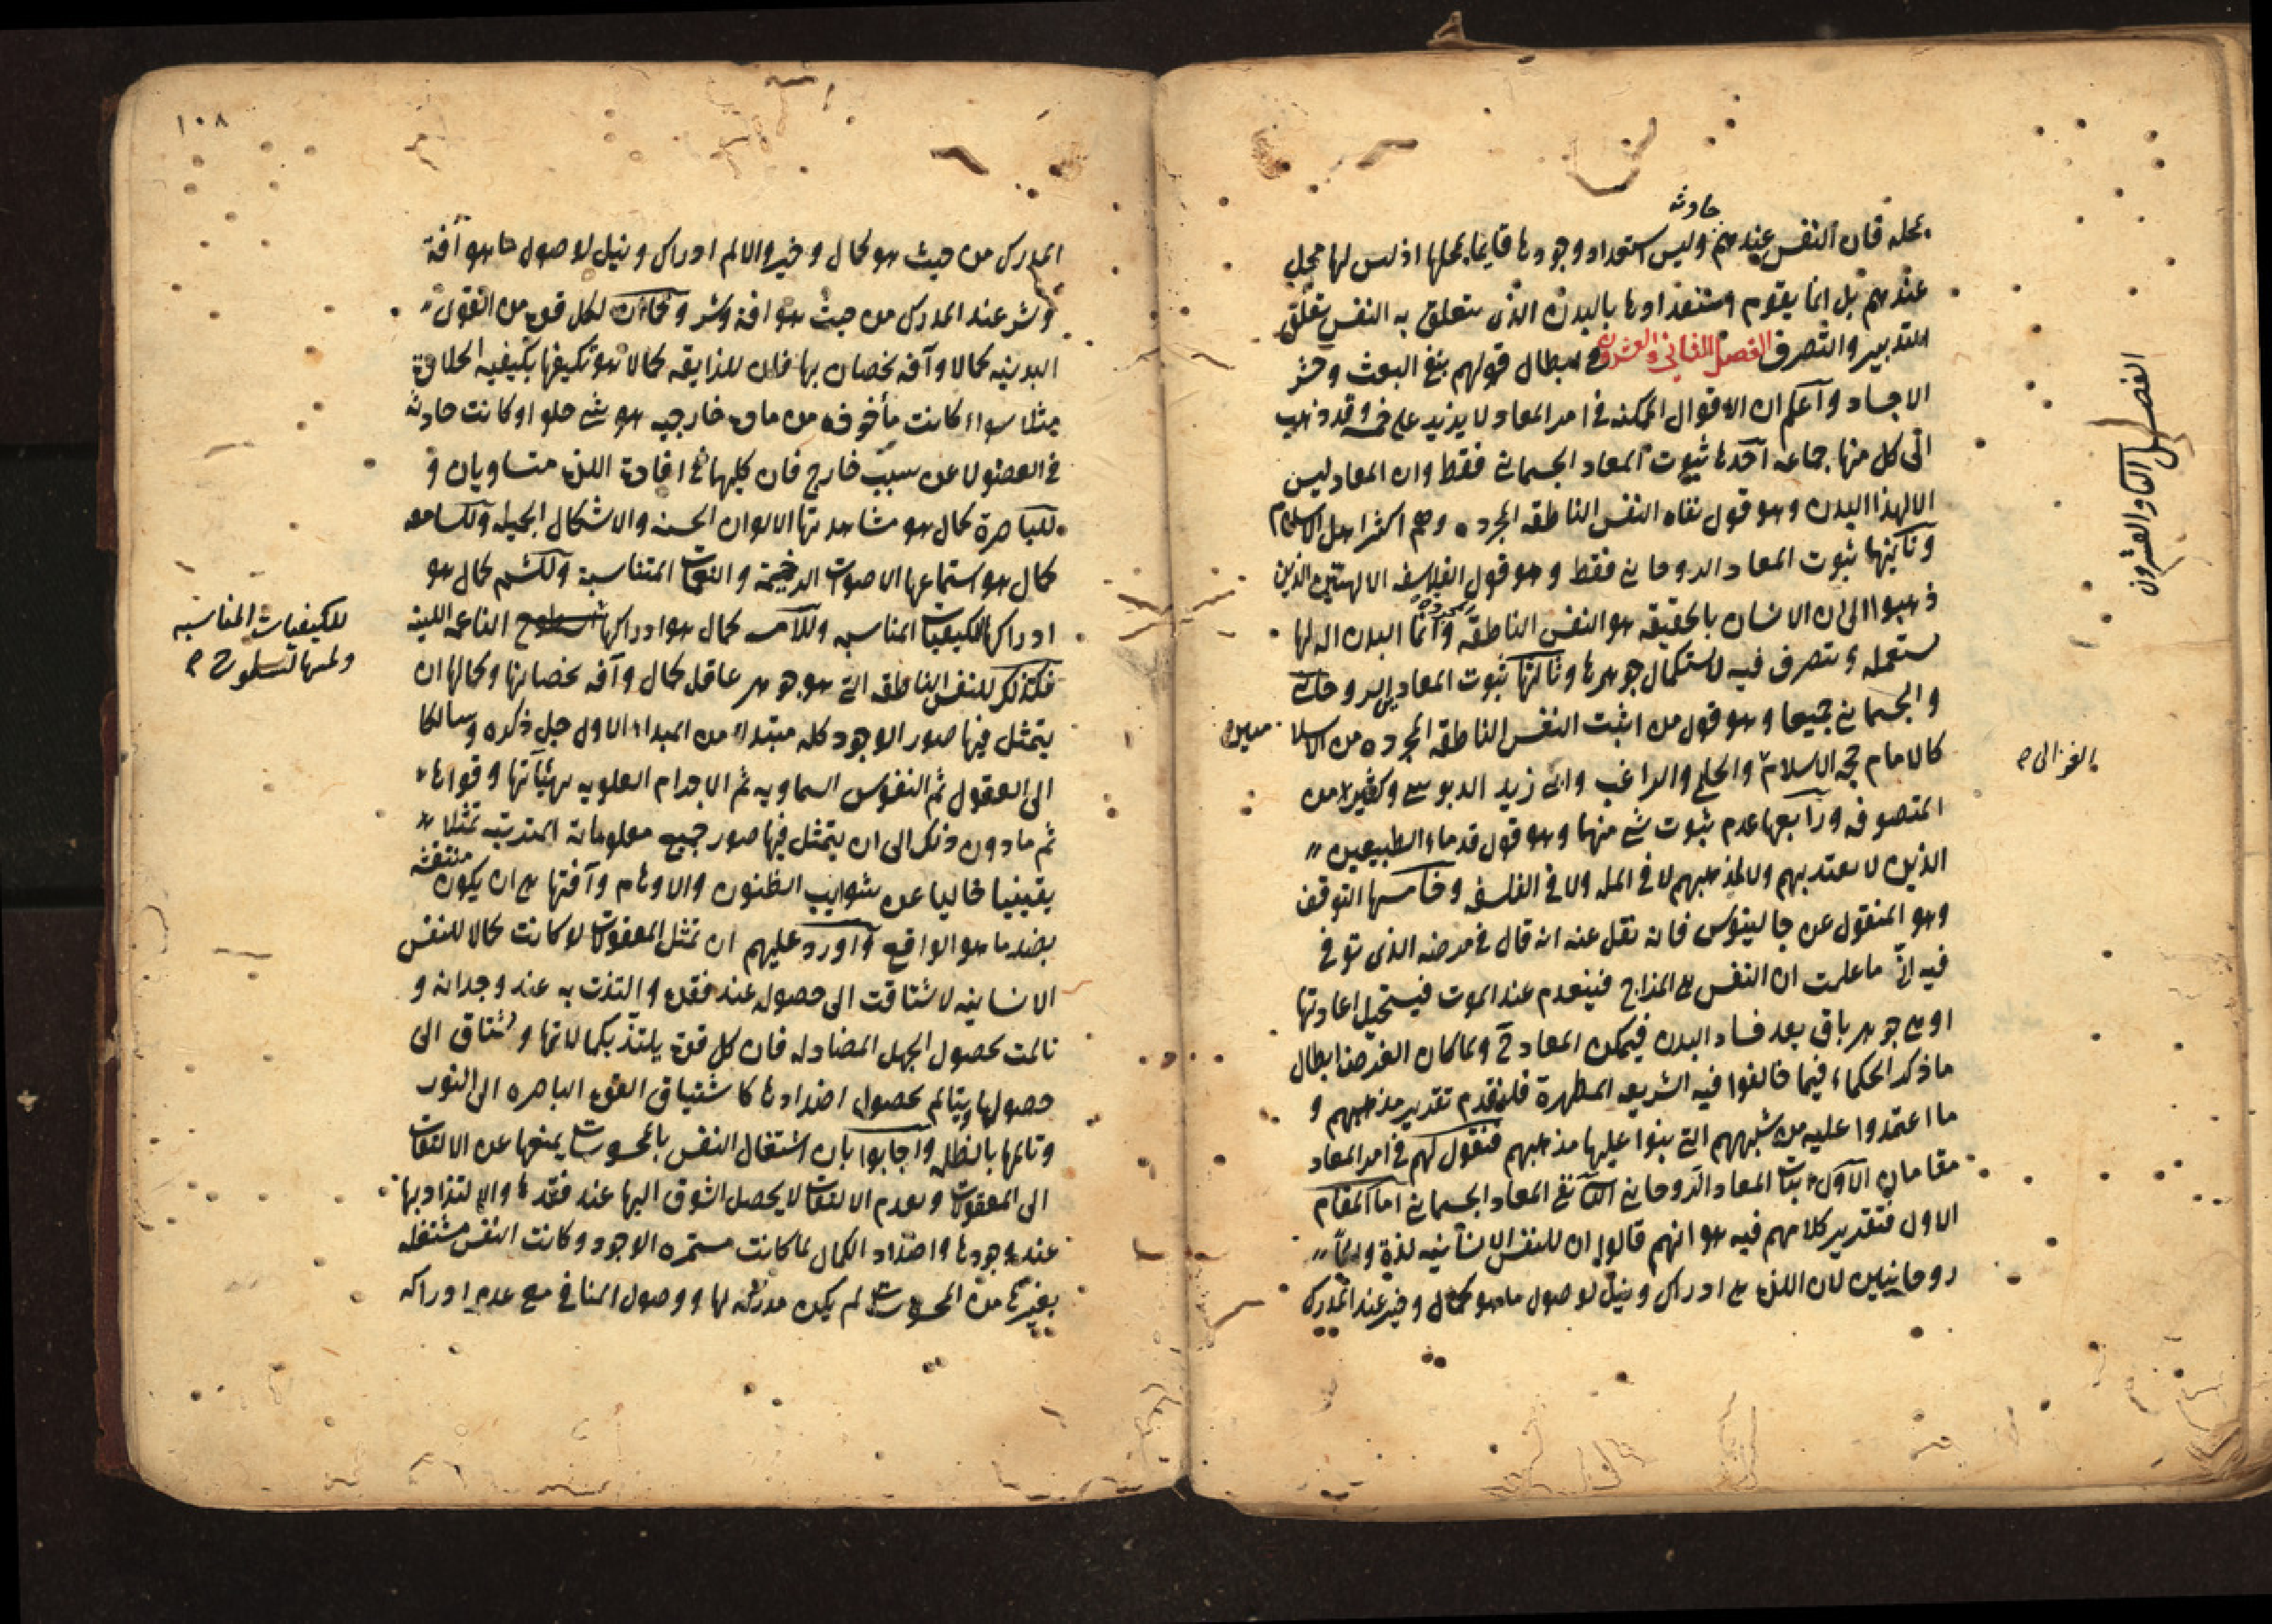 حادثه
بمحله فان النفس عندهم وليس استعداد وجودها قايما بمحلها اذ ليس لها محل
عندهم بل انما يقوم استعدادها بالبدن الذى يتعلق به النفس تعلق
التدبير والتصرف الفصل الثانى والعشرون فى ابطال قولهم بنفى البعث وحشر
الاجساد واعلم ان الاقوال الممكنة فى امر المعاد لا يزيد على خمسة وقد ذهب
الى كل منها جماعه احدها ثبوت المعاد الجسمانى فقط وان المعاد ليس
الا لهذا البدن وهو قول نفاة النفس الناطقه المجرده وهم اكثر اهل الاسلام
وثانيها ثبوت المعاد الروحانى فقط وهو قول الفلاسفه الالهيين الذين
ذهبوا الى ان الانسان بالحقيقه هو النفس الناطقه المجرده وانما البدن اله لها
يستعمله ويتصرف فيه لاستكمال جوهرها وثالثها ثبوت المعاد الروحانى
والجسمانى جميعا وهو قول من اثبت النفس الناطقه المجرده من الاسلاميين
كالامام حجه الاسلام والحليمى والراغب وابى زيد الدبوسى وكثير من
المتصوفه ورابعها عدم ثبوت شى منهما وهو قول قدماء الطبيعيين
الذين لا يعتد بهم ولا بمذهبهم لا فى المله ولا فى الفلسفه وخامسها التوقف
وهو المنقول عن جالينوس فانه نقل عنه انه قال فى مرضه الذى توفى
فيه انى ما علمت ان النفس هى المزاج فينعدم عند الموت فيستحيل اعادتها
او هى جوهر باق بعد فساد البدن فيمكن المعاد ح ولما كان الغرض ابطال
ما ذكر الحكماء فيما خالفوا فيه الشريعه المطهرة فلنقدم تقرير مذهبهم و
ما اعتمدوا عليه من شبههم التى بنوا عليها مذهبهم فنقول لهم فى امر المعاد
مقامان الاول اثبات المعاد الروحانى الثانى نفى المعاد الجسمانى اما المقام
الاول فتقرير كلامهم فيه هو انهم قالوا ان للنفس الانسانيه لذة والما
روحانيين لان اللذه هى ادراك ونيل لوصول ما هو كمال وخير عند المدرك
الفصل الثانى والعشرون
الغزالى
١٠٨
المدرك من حيث هو كمال وخير والالم ادراك ونيل لوصول ما هو آفة
وشر عند المدرك من حيث هو افة وشر وكما ان لكل قوه من القوى
البدنيه كمالا وآفه يخصان بها فان للذايقه كمالا هو تكيفها بكيفيه الحلاوة
مثلا سواء كانت مأخوذه من ماده خارجيه هو شى حلو او كانت حادثه
فى العضو لا عن سبب خارج فان كليهما فى افادة اللذه متساويان و
للباصرة كمال هو مشاهدتها الالوان الحسنه والاشكال الجميله وللسامعه
كمال هو استماعها الاصوات الرخيمة والنغمات المتناسبة وللشم كمال هو
ادراكها للكيفيات المناسبه وللامسه كمال هو ادراكها السطوح الناعمه اللينه
فكذلك للنفس الناطقه التى هو جوهر عاقل كمال وآفه يخصانها وكمالها ان
يتمثل فيها صور الوجود كله مبتدأ من المبداء الاول جل ذكره وسالكا
الى العقول ثم النفوس السماويه ثم الاجرام العلويه بهيئاتها وقواها
ثم ما دون ذلك الى ان يتمثل فيها صور جميع معلوماته المترتبه تمثلا
يقينيا خاليا عن شوايب الظنون والاوهام وآفتها هى ان يكون منتقشه
بضد ما هو الواقع واورد عليهم ان تمثل المعقولات لو كانت كمالا للنفس
الانسانيه لاشتاقت الى حصوله عند فقده والتذت به عند وجدانه و
تالمت بحصول الجهل المضاد له فان كل قوه يلتذ بكمالاتها وتشتاق الى
حصولها ويتالم بحصول اضدادها كاشتياق القوه الباصره الى النور
وتالمها بالظلمه واجابوا بان اشتغال النفس بالمحسوسات يمنعها عن الالتفات
الى المعقولات وبعدم الالتفات لا يحصل الشوق اليها عند فقدها والالتذاد بها
عند وجودها واضداد الكمال لما كانت مستمره الوجود وكانت النفس مشتغله
بغيرها من المحسوسات لم يكن مدركه لها ووصول المنافى مع عدم ادراكه
للكيفيات المناسبه